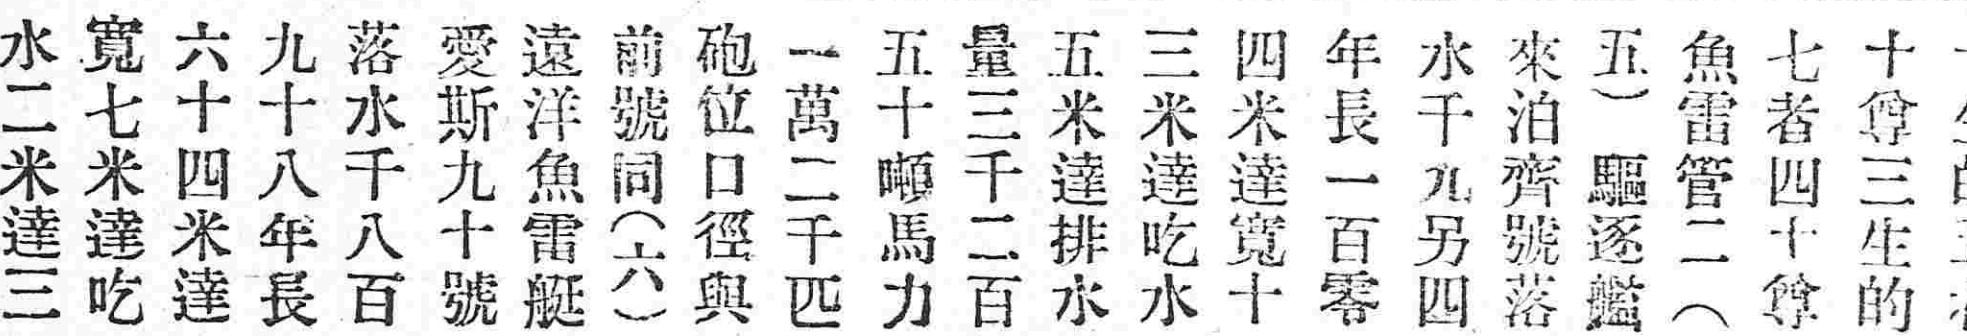 十尊三生的
七者四十尊
魚雷管二（
五）驅逐艦
來泊齊號落
水千九另四
年長一百零
四米達寬十
三米達吃水
五米達排水
量三千二百
五十噸馬力
一萬二千匹
砲位口徑與
前號同（六）
遠洋魚雷艇
愛斯九十號
落水千八百
九十八年長
六十四米達
寬七米達吃
水二米達三